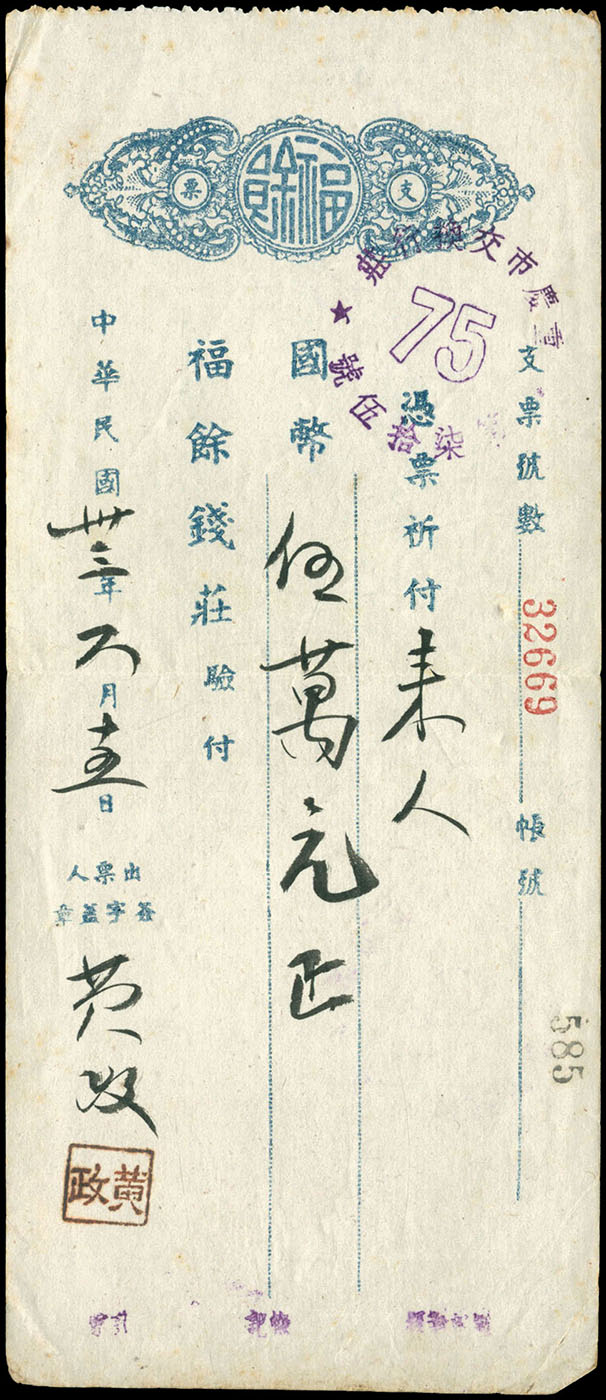 福餘
支票
重慶市交換行莊
第柒拾伍號
75
支票號數 32669 帳號 585
憑票祈付 来人
國幣 伍萬元正
福餘錢莊驗付
中華民國卅三年六月十五日
出票人
簽字蓋章
黄政
黄政